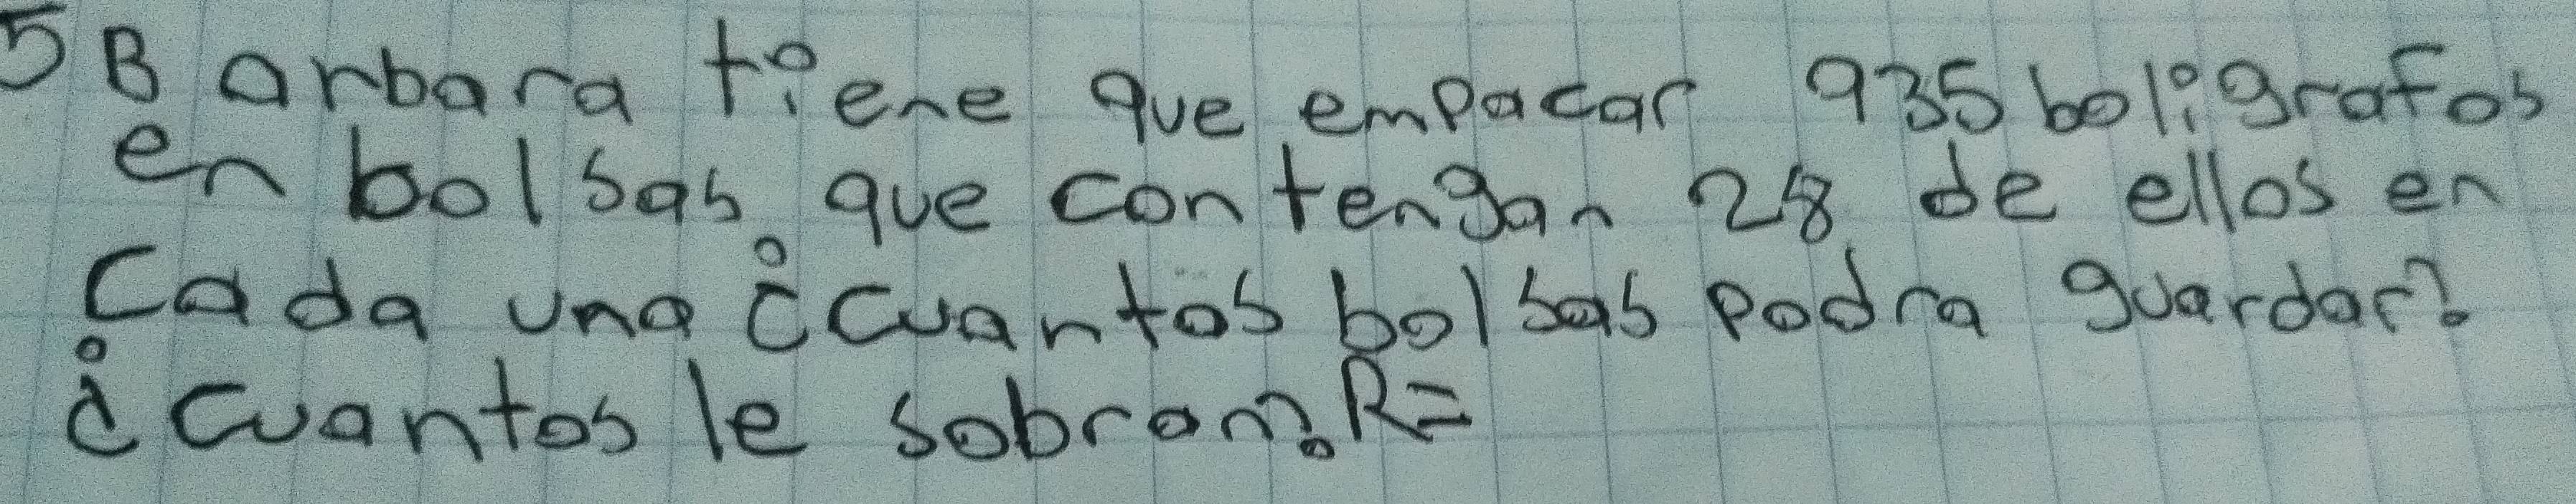 5 Barbara tiene que empacar 935 boligrafos
en bolsas que contengan 28 de ellos en
cada una ¿cuantos bolsas podra guardar?
¿cuantos le sobran? R=